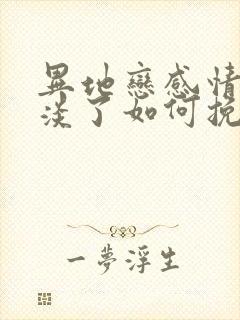 異地戀感情
淡了如何挽
一夢浮生